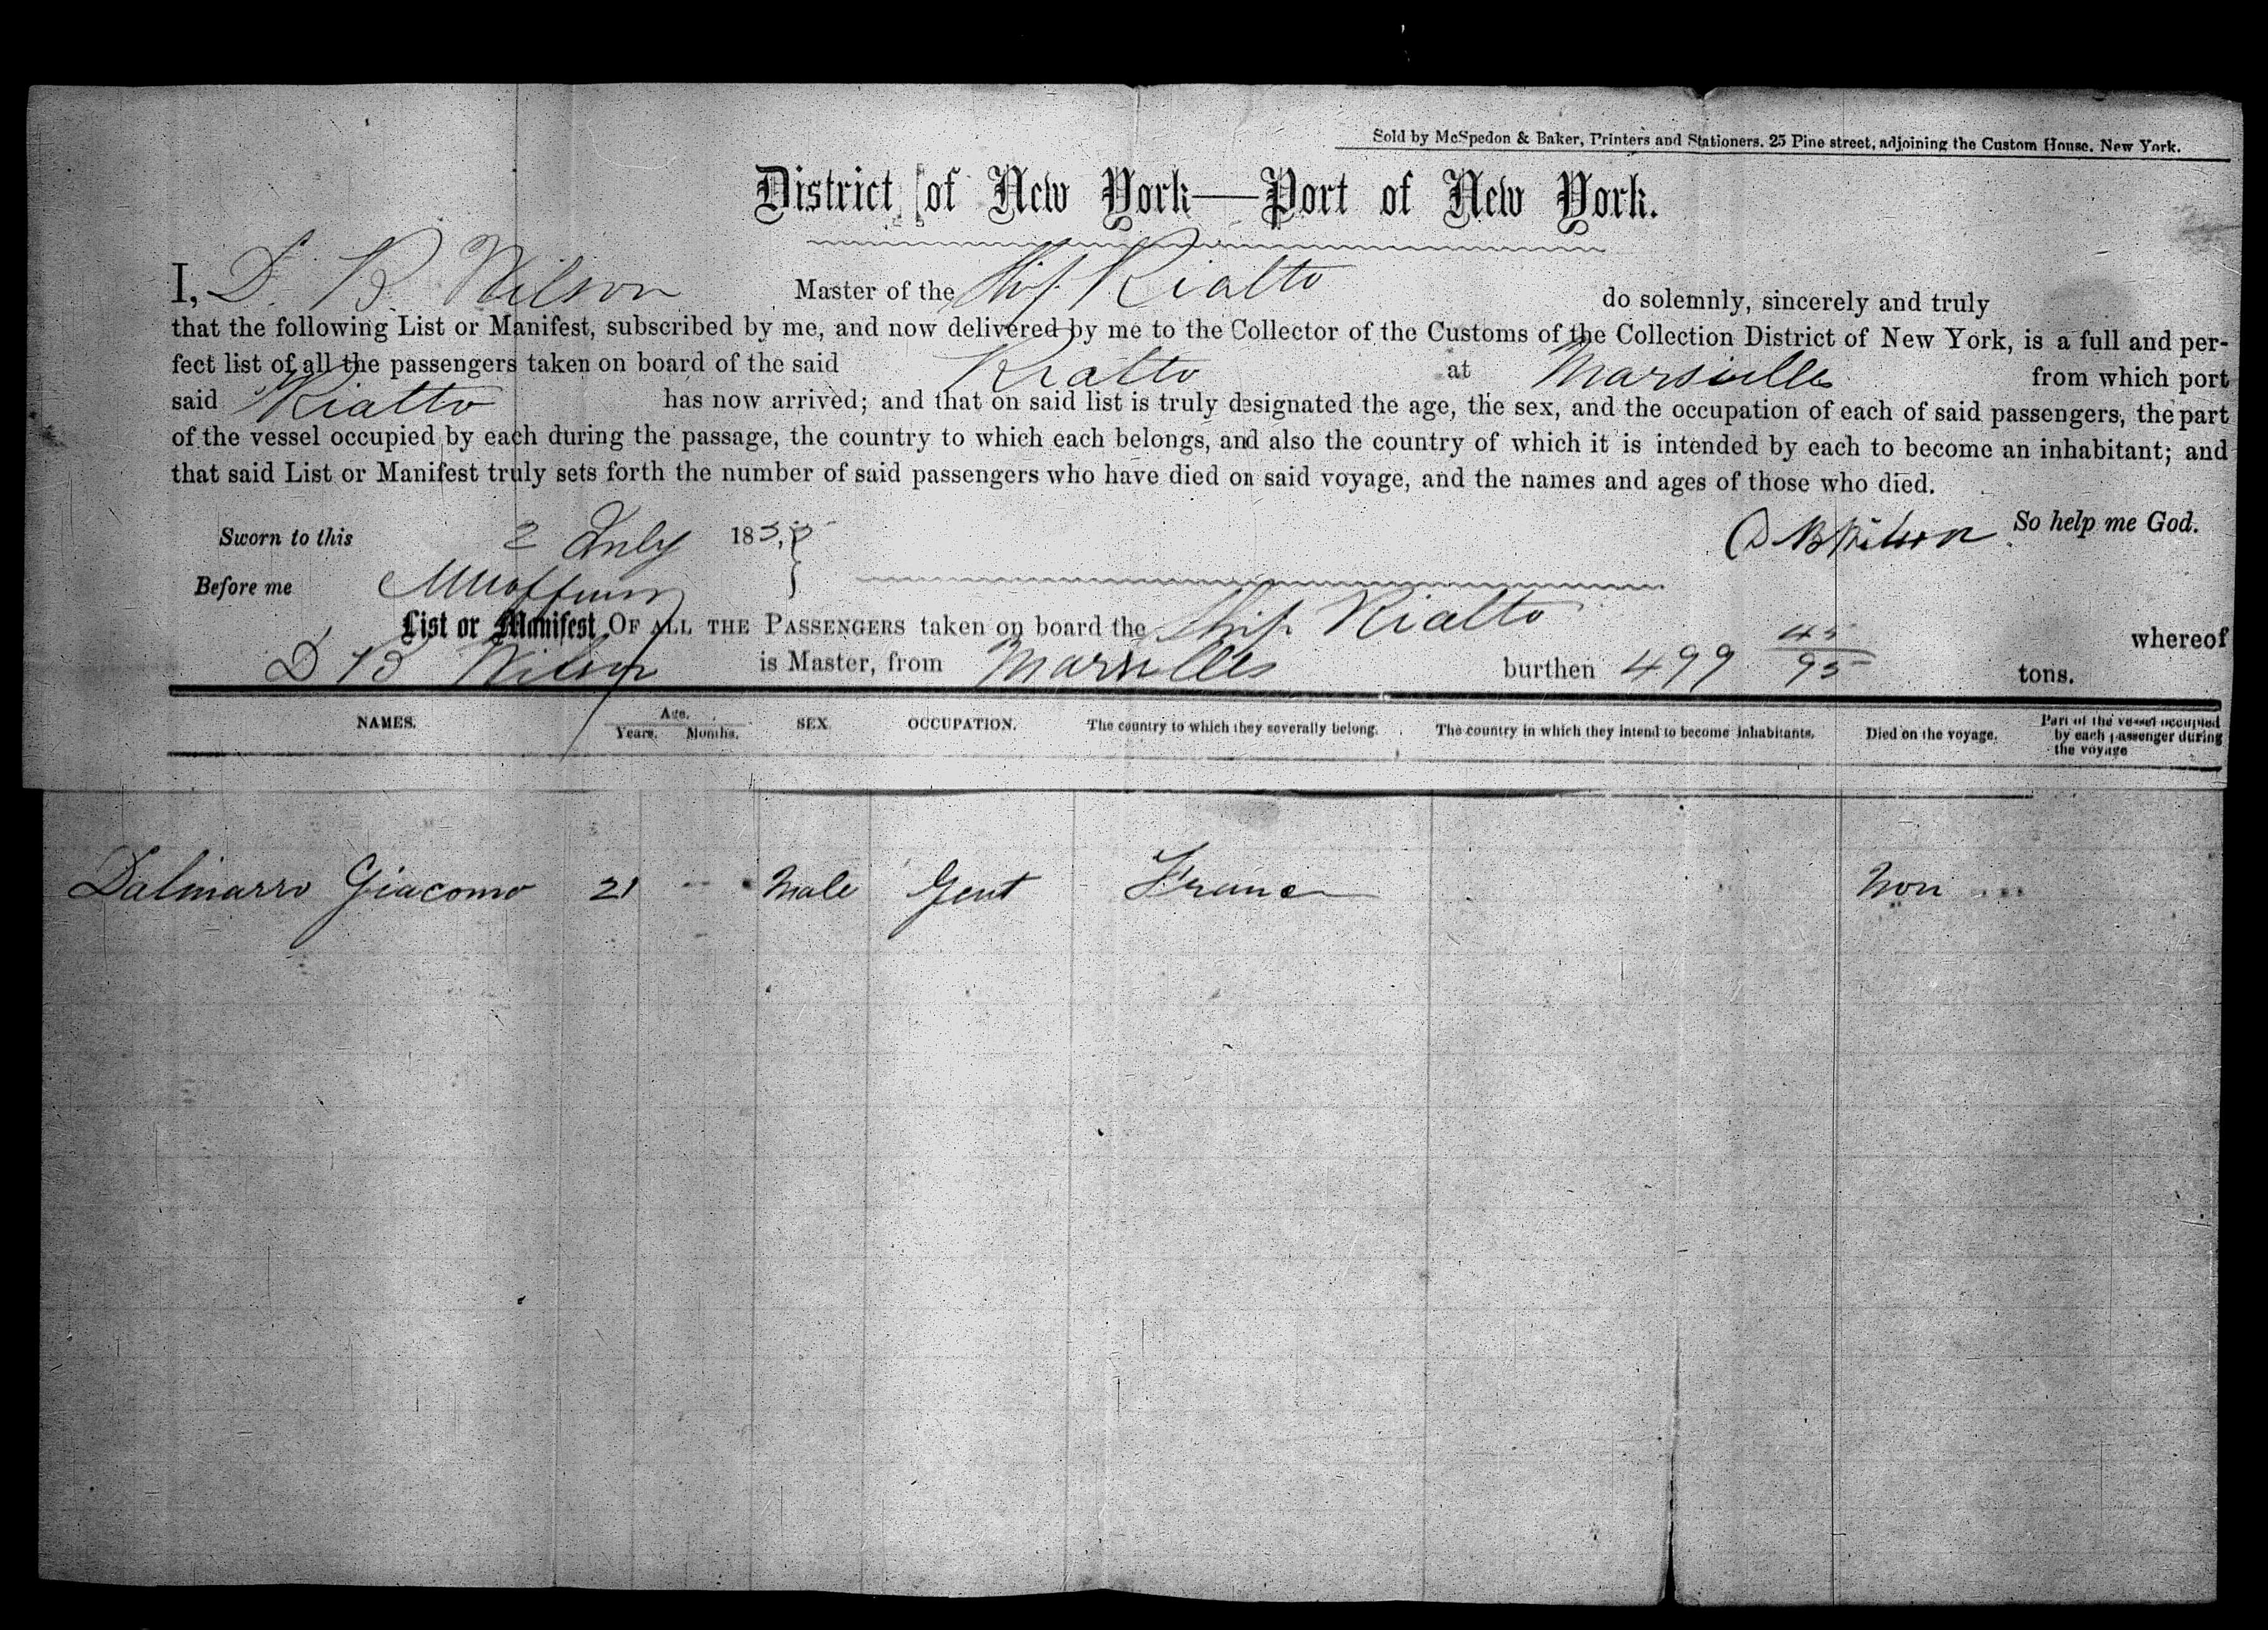 Sold by McSpedon & Baker, Printers and Stationers. 25 Pine street, adjoining the Custom House. New York.
District of New York—Port of New York.
I, D. B. Wilson Master of the Ship Rialto do solemnly, sincerely and truly
that the following List or Manifest, subscribed by me, and now delivered by me to the Collector of the Customs of the Collection District of New York, is a full and per-
fect list of all the passengers taken on board of the said Rialto at Marseilles from which port
said Rialto has now arrived; and that on said list is truly designated the age, the sex, and the occupation of each of said passengers, the part
of the vessel occupied by each during the passage, the country to which each belongs, and also the country of which it is intended by each to become an inhabitant; and
that said List or Manifest truly sets forth the number of said passengers who have died on said voyage, and the names and ages of those who died.
Sworn to this 2 July 185 DB Wilson So help me God.
Before me
List or Manifest OF ALL THE PASSENGERS taken on board the Ship Rialto whereof
D B Wilson is Master, from Marseilles burthen 499 45/95 tons.
NAMES. Age. Years. Months. SEX. OCCUPATION. The country to which they severally belong. The country in which they intend to become inhabitants. Died on the voyage. Part of the vessel occupied by each passenger during the voyage
Dalmarro Giacomo 21 Male Gent France Non